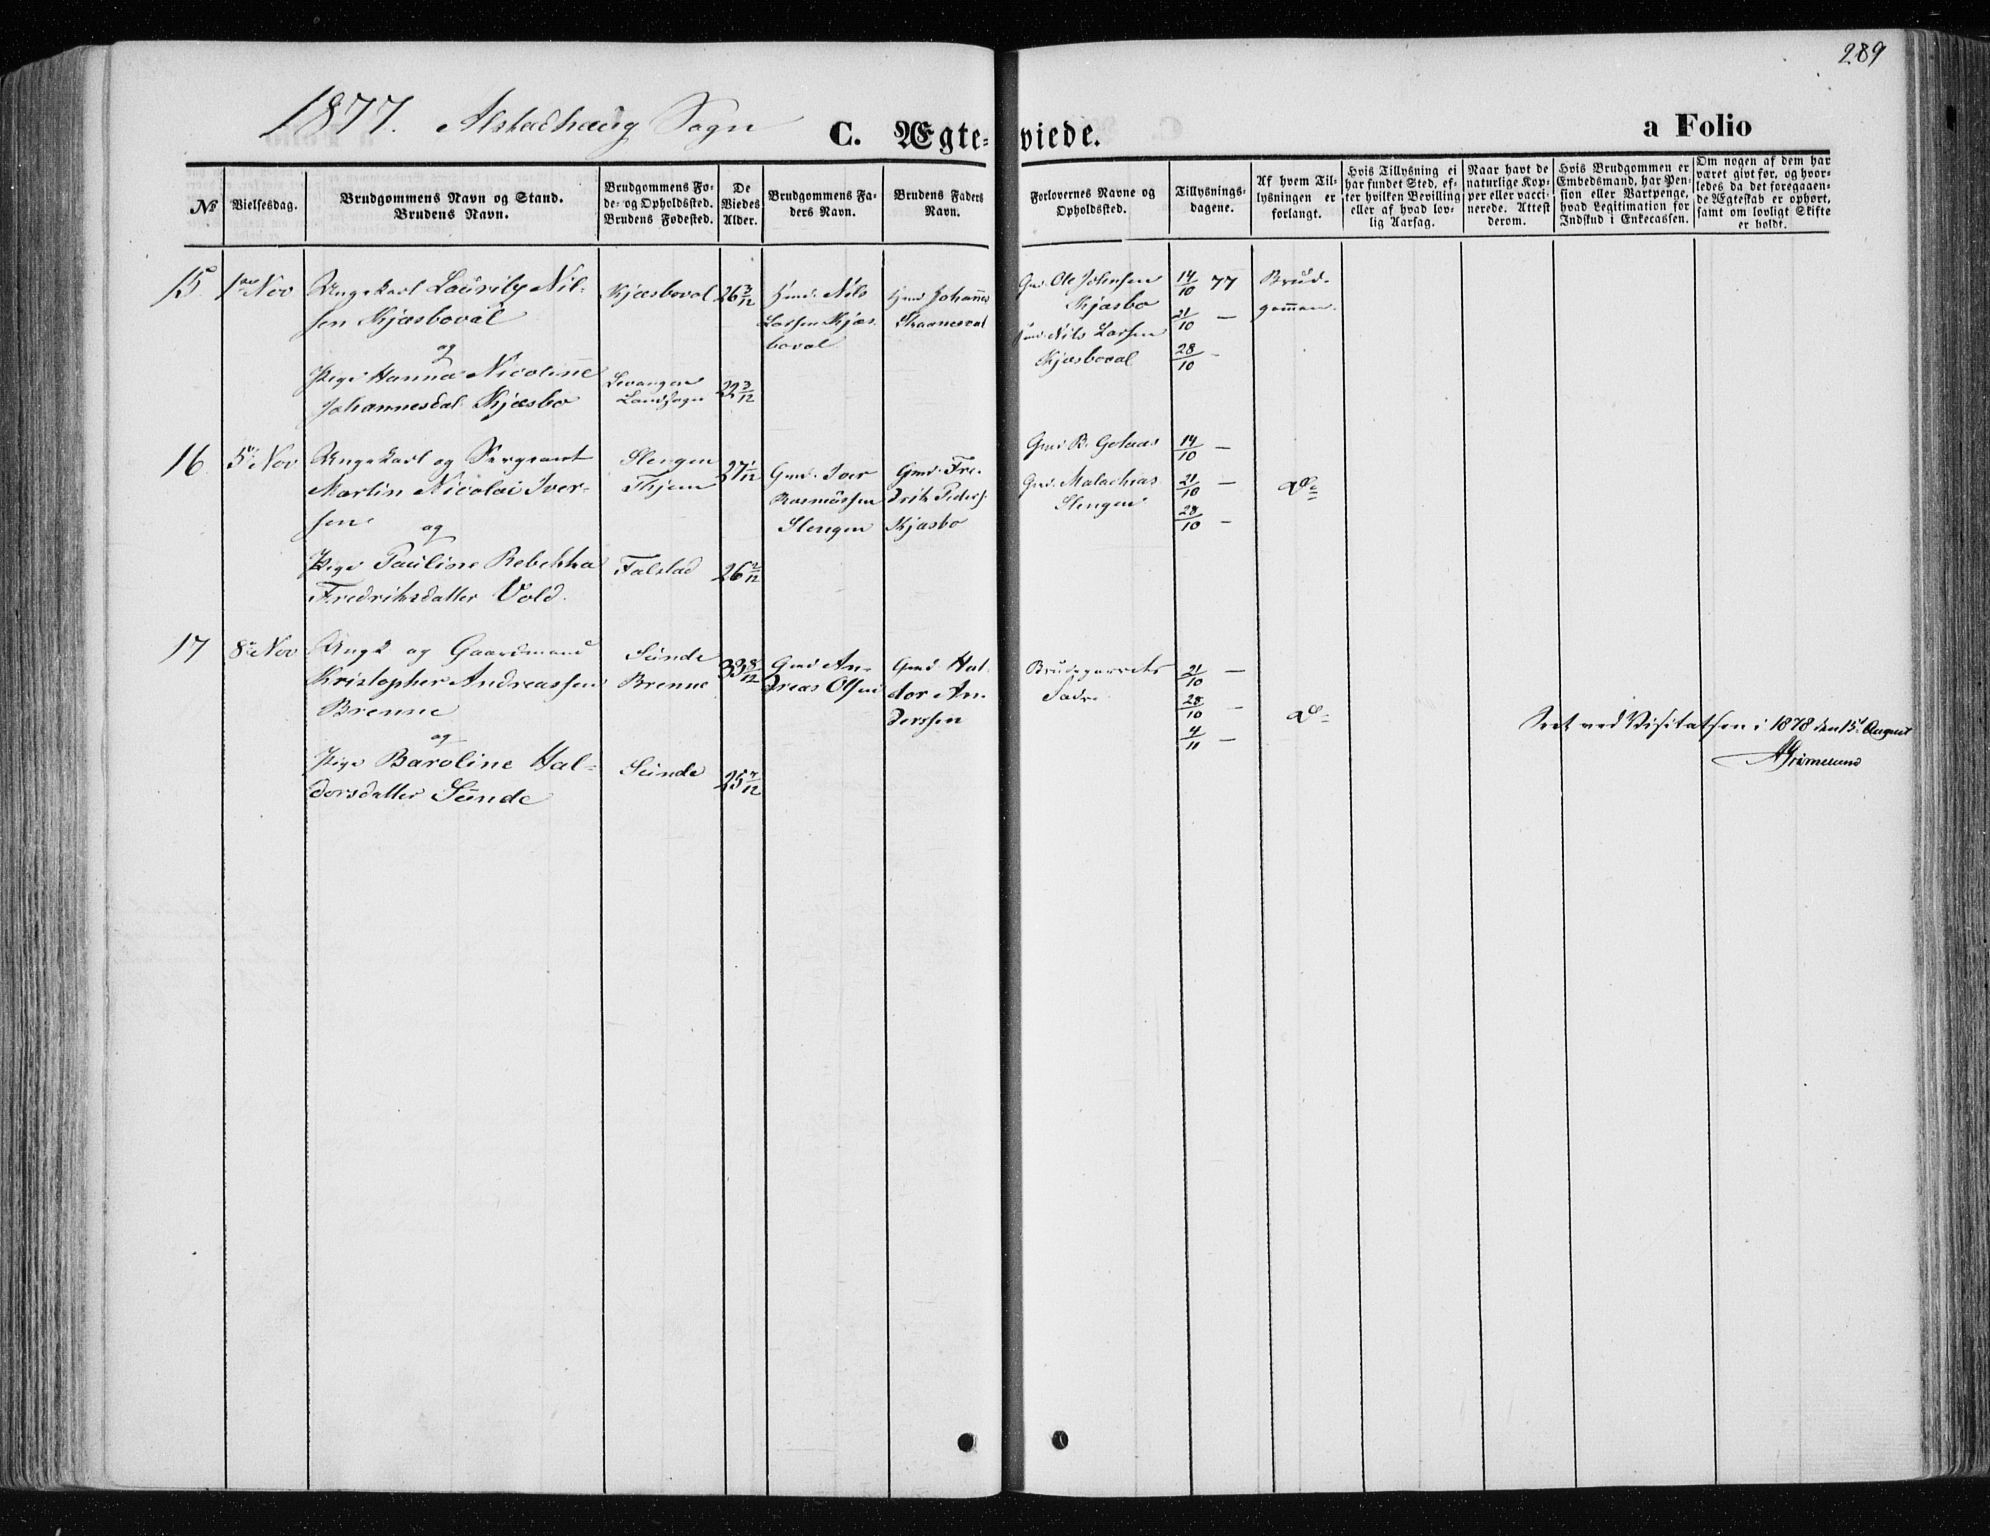 289
1877. Alstadhaug Sogn
C. Ægteviede.
a Folio
No
Vielsesdag.
Brudgommens Navn og Stand.
Brudens Navn.
Brudgommens Fo-
de- og Opholdssted.
Brudens Fodested.
De
Viedes
Alder.
Brudgommens Fa-
ders Navn.
Brudens Faders
Navn.
Forlovernes Navne og
Opholdssted.
Tillysnings-
dagene.
Af hvem Til-
lysningen er
forlangt.
Hvis Tillysning ei
har fundet Sted, ef-
ter hvilken Bevilling
eller af hvad lov-
lig Aarsag.
Naar havt de
naturlige Kop-
per eller vacci-
nerede. Attest
derom.
Hvis Brudgommen er
Embedsmand, har Pen-
sion eller Vartpenge,
hvad Legitimation for
Indskud i Enkecassen.
Om nogen af dem har
været givt før, og hvor-
ledes da det foregaaen-
de Ægteskab er ophørt,
samt om lovligt Skifte
er holdt.
15
1ste Nov
Ungekarl Lauritz Nil-
sen Kjæsboval
og
Pige Hanna Nicoline
Johannesdat. Kjæsbo
Kjæsboval
Levanger
Landsogn
26 3/12
22 3/12
Hmd. Nils
Larsen Kjæs-
boval
Hmd Johannes
Gmd. Ole Johnsen
Kjæsbo
Hmd. Nils Larsen
Kjæsboval
14/10 77
21/10 —
28/10 -
Brud-
gommen.
16
5te Nov
Ungekarl og Sergeant
Martin Nicolai Iver-
sen
og
Pige Pauline Rebekka
Fredriksdatter Vold.
Slengen
Thjem
Falstad
27 1/12
26 2/12
Gmd. Iver
Rasmussen
Slengen
Gmd. Fre-
drik Peders.
Kjæsbo
Gmd R. Golaas
Gmd. Malachias
Slengen
14/10 —
21/10 —
28/10 —
Do
17
8de Nov
Ungk og Gaardmand
Kristopher Andreassen
Brenne
og
Pige Baroline Hal-
dorsdatter Sünde
Sünde
Brenne
Sünde
33 8/12
25 7/12
Gmd An-
dreas Olsen
Gmd. Hal-
dor An-
dersen
Brudeparrets
Fædre
21/10 —
28/10 —
4/11 —
Do
Seet ved Visitatsen i 1878 den 15de August
AGrimelund